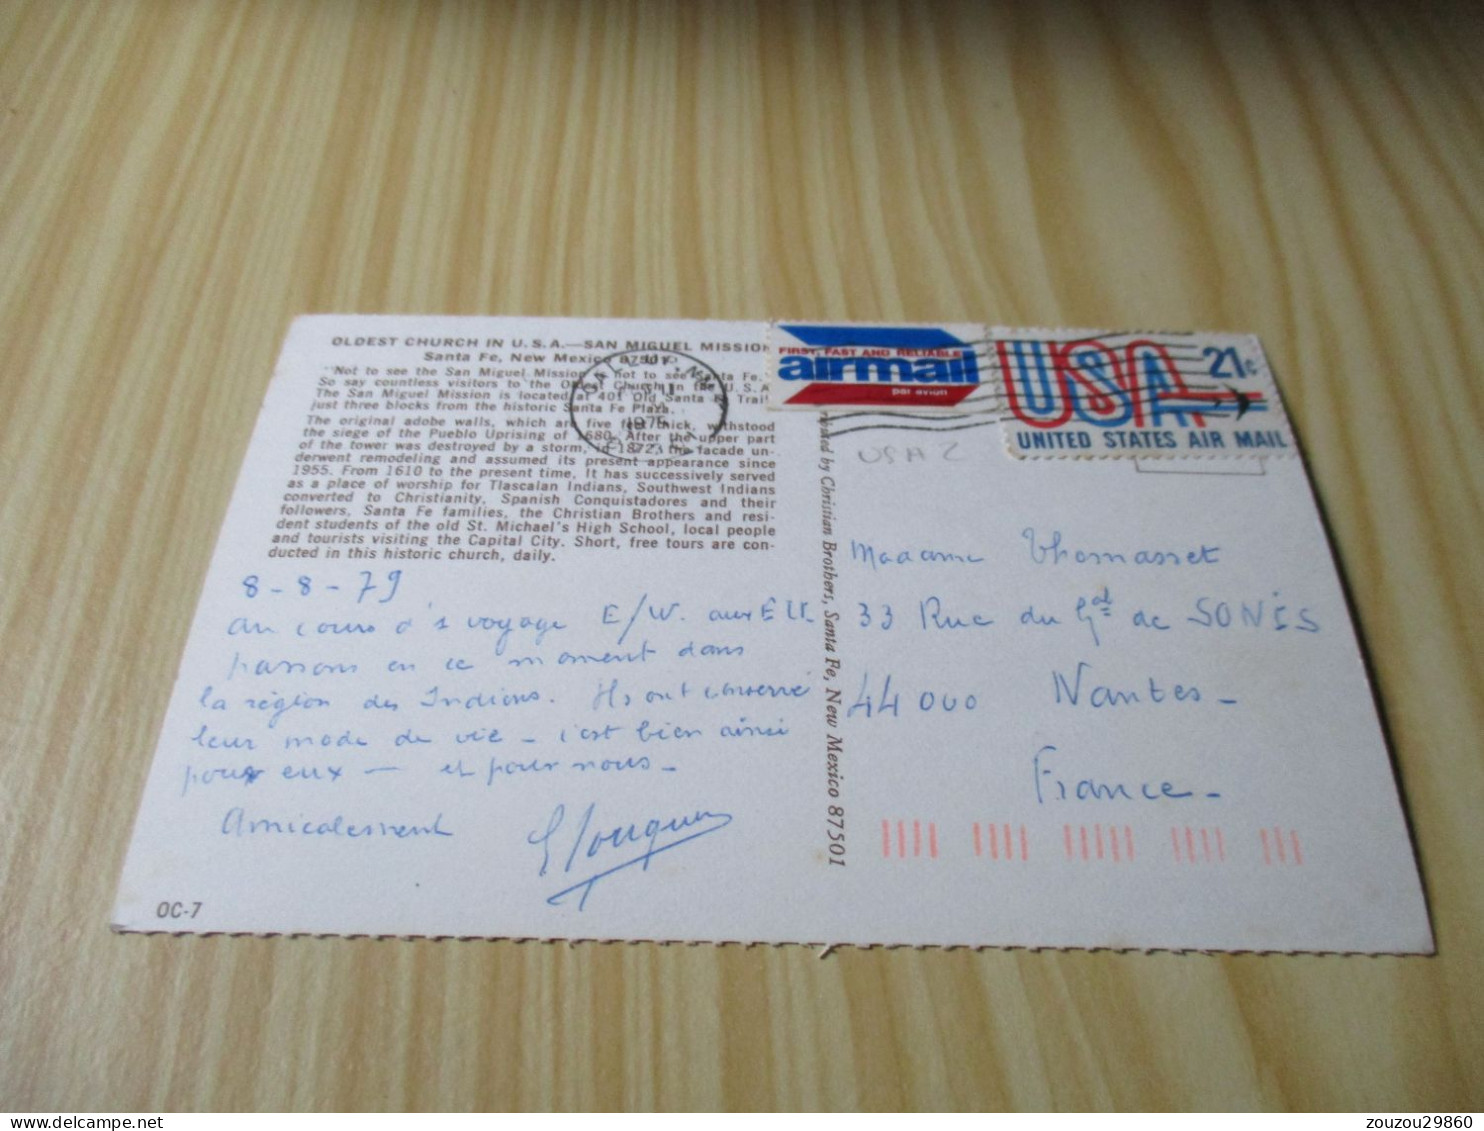 OLDEST CHURCH IN U.S.A.—SAN MIGUEL MISSION
Santa Fe, New Mexico 87501
"Not to see the San Miguel Mission is not to see Santa Fe."
So say countless visitors to the Oldest Church in the U.S.A.
The San Miguel Mission is located at 401 Old Santa Fe Trail
just three blocks from the historic Santa Fe Plaza.
The original adobe walls, which are five feet thick, withstood
the siege of the Pueblo Uprising of 1680. After the upper part
of the tower was destroyed by a storm, in 1872, the facade un-
derwent remodeling and assumed its present appearance since
1955. From 1610 to the present time, It has successively served
as a place of worship for Tlascalan Indians, Southwest Indians
converted to Christianity, Spanish Conquistadores and their
followers, Santa Fe families, the Christian Brothers and resi-
dent students of the old St. Michael's High School, local people
and tourists visiting the Capital City. Short, free tours are con-
ducted in this historic church, daily.
8-8-79
au cours d'1 voyage E/W. aux EU.
passons en ce moment dans
la région des Indiens. Ils ont conservé
leur mode de vie - c'est bien ainsi
pour eux — et pour nous -
Amicalement
OC-7
by Christian Brothers, Santa Fe, New Mexico 87501
FIRST, FAST AND RELIABLE
airmail
par avion
USA 21c
UNITED STATES AIR MAIL
USA 2
Madame Thomasset
33 Rue du Gal de SONIS
44000 Nantes -
France -
zouzou29860